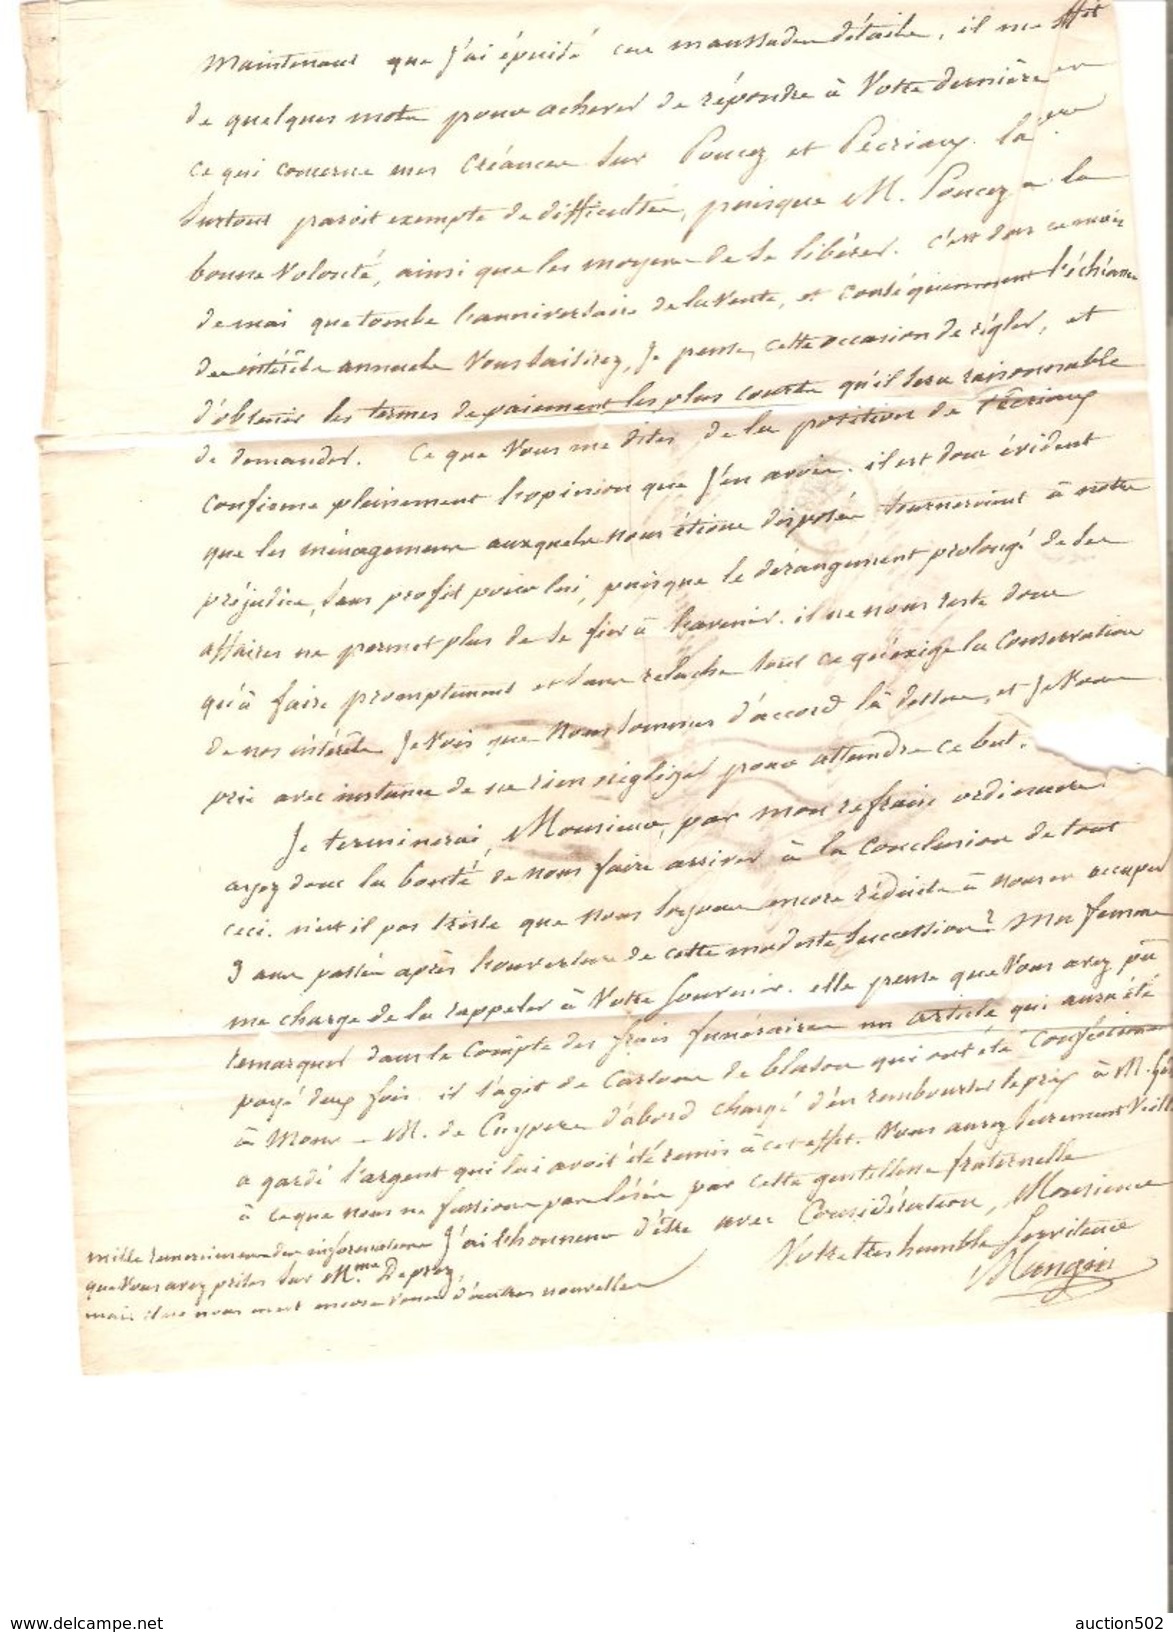 Maintenant que j'ai épuisé ces maussades détails, il me suffit
de quelques mots pour achever de répondre à Votre dernière en
ce qui concerne mes Créances sur Poucez et Pecriaux. la 1ere
surtout paroit exempte de difficultés, puisque M. Poucez a la
bonne volonté, ainsi que les moyens de se libérer. c'est dans ce mois
de mai que tombe l'anniversaire de la vente, et conséquemment l'échéance
des intérêts annuels Vous saisirez, je pense, cette occasion de régler, et
d'obtenir les termes de paiement les plus courts qu'il sera raisonnable
de demander. Ce que Vous me dites de la position de Pécriaux
confirme pleinement l'opinion que j'en avois. il est donc évident
que les ménagemens auxquels nous étions disposés tourneroient à notre
préjudice, sans profit pour lui, puisque le dérangement prolongé de ses
affaires ne permet plus de se fier à l'avenir. il ne nous reste donc
qu'à faire promptement et sans relache tout ce qu'exige la Conservation
de nos intérêts je vois que nous sommes d'accord là dessus, et je Vous
prie avec instance de ne rien négliger pour atteindre ce but.
Je terminerai, Monsieur, par mon refrain ordinaire:
ayez donc la bonté de nous faire arriver à la Conclusion de tout
ceci. n'est il pas triste que nous soyons encore réduits à nous en occuper
9 ans passés après l'ouverture de cette modeste succession? Ma femme
me charge de la rappeler à Votre souvenir. elle pense que Vous avez pû
remarquer dans le Compte des frais funéraires un article qui aura été
payé deux fois. il s'agit de Cartons de blason qui ont été Confectionnés
à Mons - M. de Cuypere d'abord chargé d'en rembourser le prix à M.
a gardé l'argent qui lui avoit été remis à cet effet. Vous aurez surement Veillé
à ce que nous ne fussions pas lésés par cette gentillesse fraternelle
J'ai l'honneur d'être avec Considération, Monsieur
Votre très humble serviteur
Mangin
mille remerciemens des informations
que Vous avez prises sur Mme. Deprez,
mais il ne nous est encore venu d'autres nouvelles
www.delcampe.net
auction502